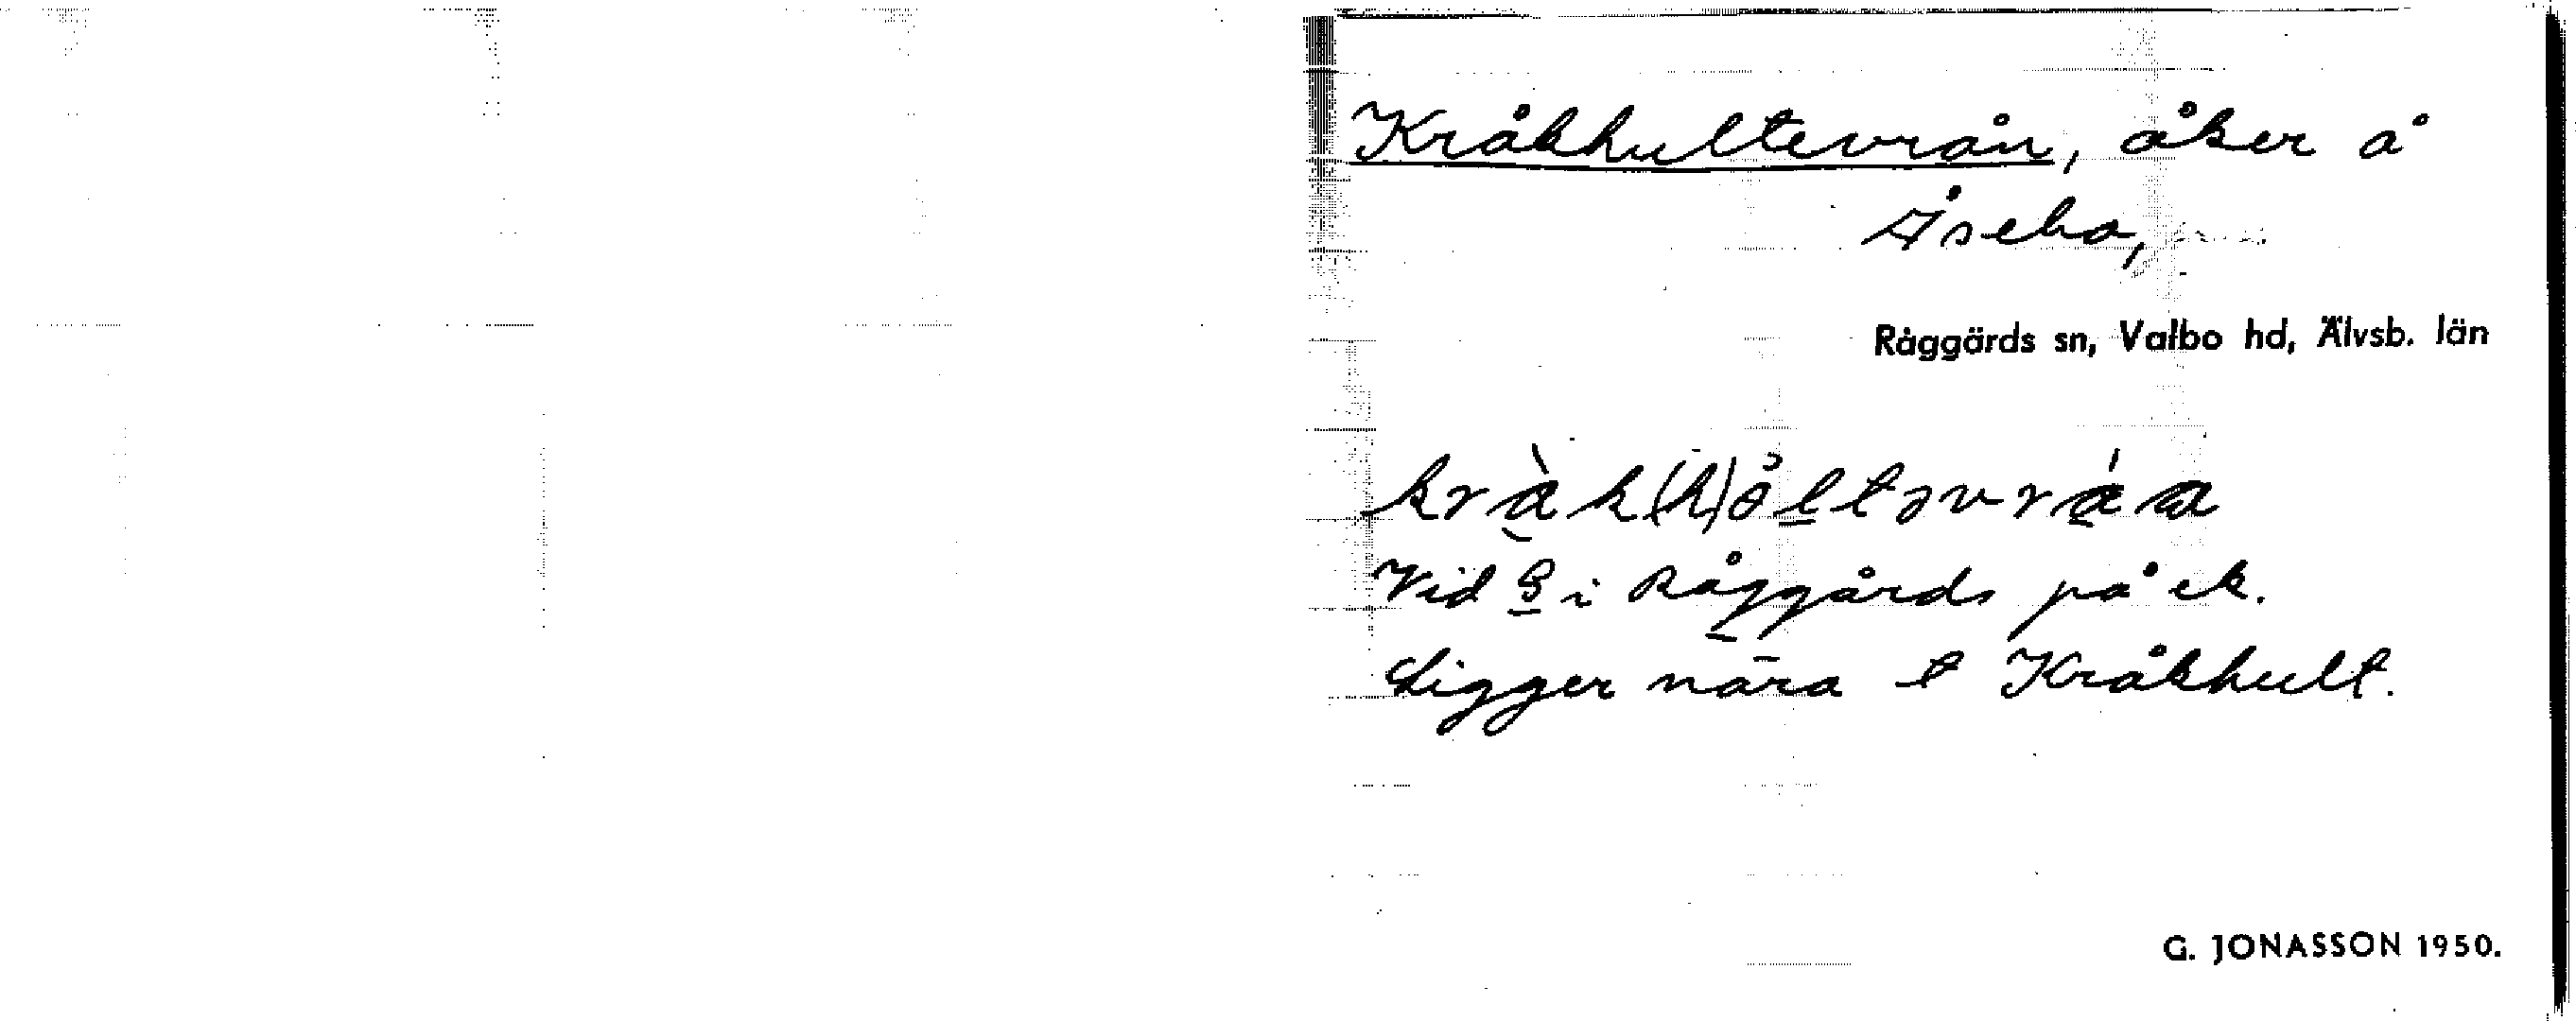 Kråkhultevrån, åker å
Åsebo,
Råggärds sn, Valbo hd, Älvsb. län
Vid g i Råggårds på ek.
Ligger nära t Kråkhult.
G. JONASSON 1950.